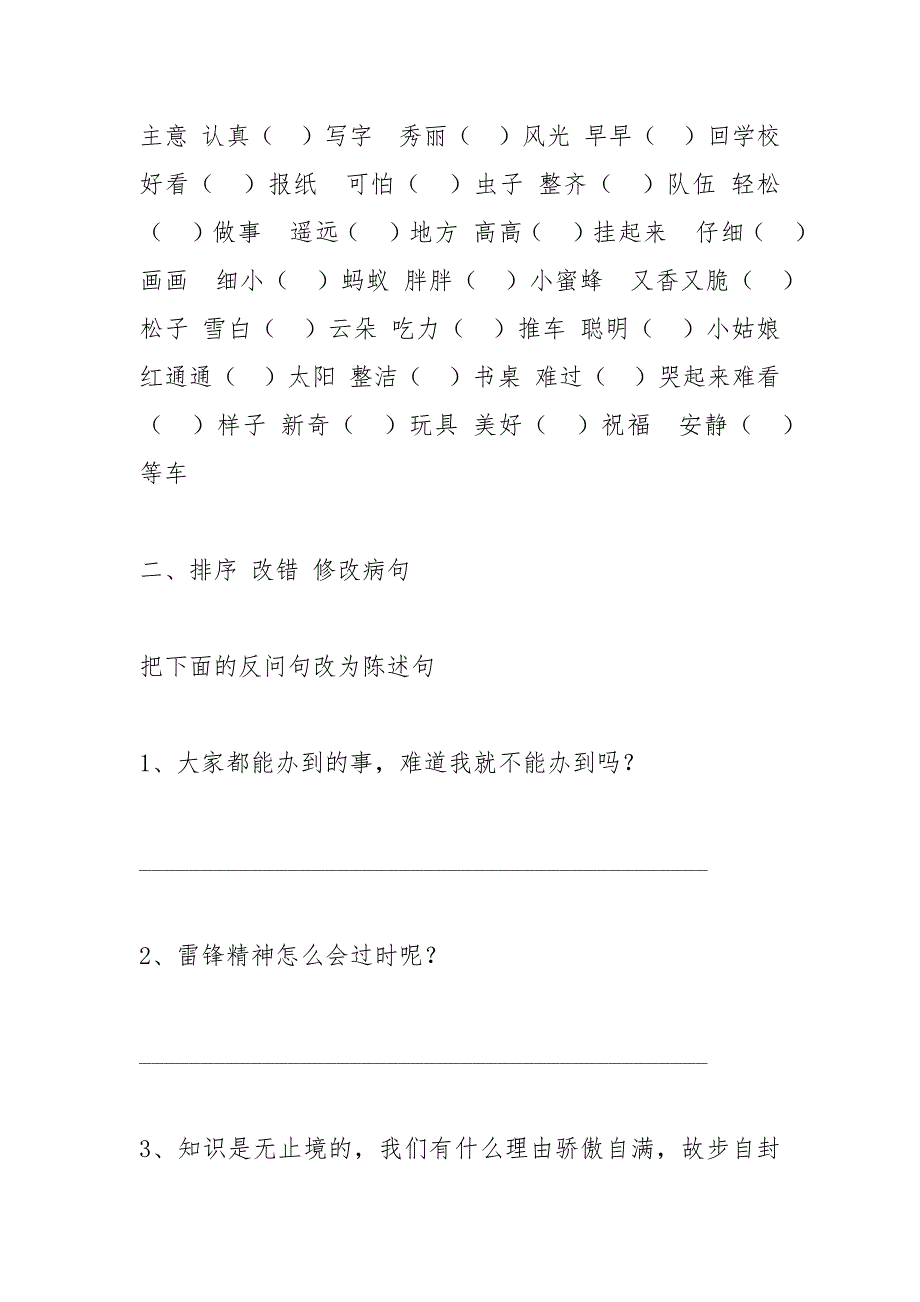 主意 认真（　）写字　秀丽（　）风光 早早（　）回学校
好看（　）报纸　可怕（　）虫子 整齐（　）队伍 轻松
（　）做事　遥远（　）地方 高高（　）挂起来　仔细（　）
画画　细小（　）蚂蚁 胖胖（　）小蜜蜂　又香又脆（　）
松子 雪白（　）云朵 吃力（　）推车 聪明（　）小姑娘
红通通（　）太阳 整洁（　）书桌 难过（　）哭起来难看
（　）样子 新奇（　）玩具 美好（　）祝福　安静（　）
等车
二、排序 改错 修改病句
把下面的反问句改为陈述句
1、大家都能办到的事，难道我就不能办到吗？
______________________________________________
2、雷锋精神怎么会过时呢？
______________________________________________
3、知识是无止境的，我们有什么理由骄傲自满，故步自封